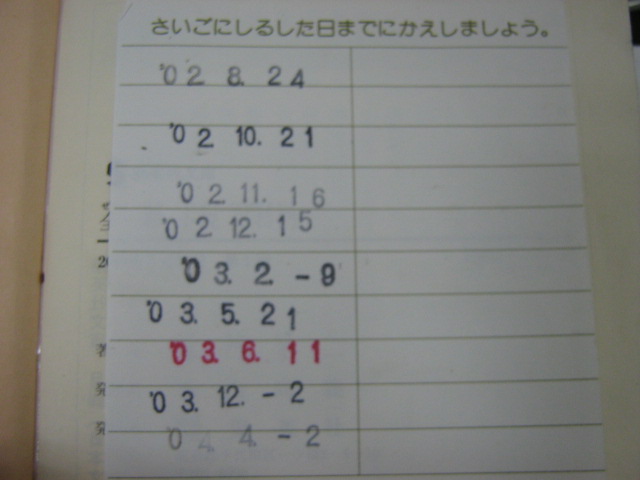 さいごにしるした日までにかえしましょう。
'02. 8. 24
'02. 10. 21
'02. 11. 16
'02. 12. 15
'03. 2. -9
'03. 5. 21
'03. 6. 11
'03. 12. -2
'04. 4. -2